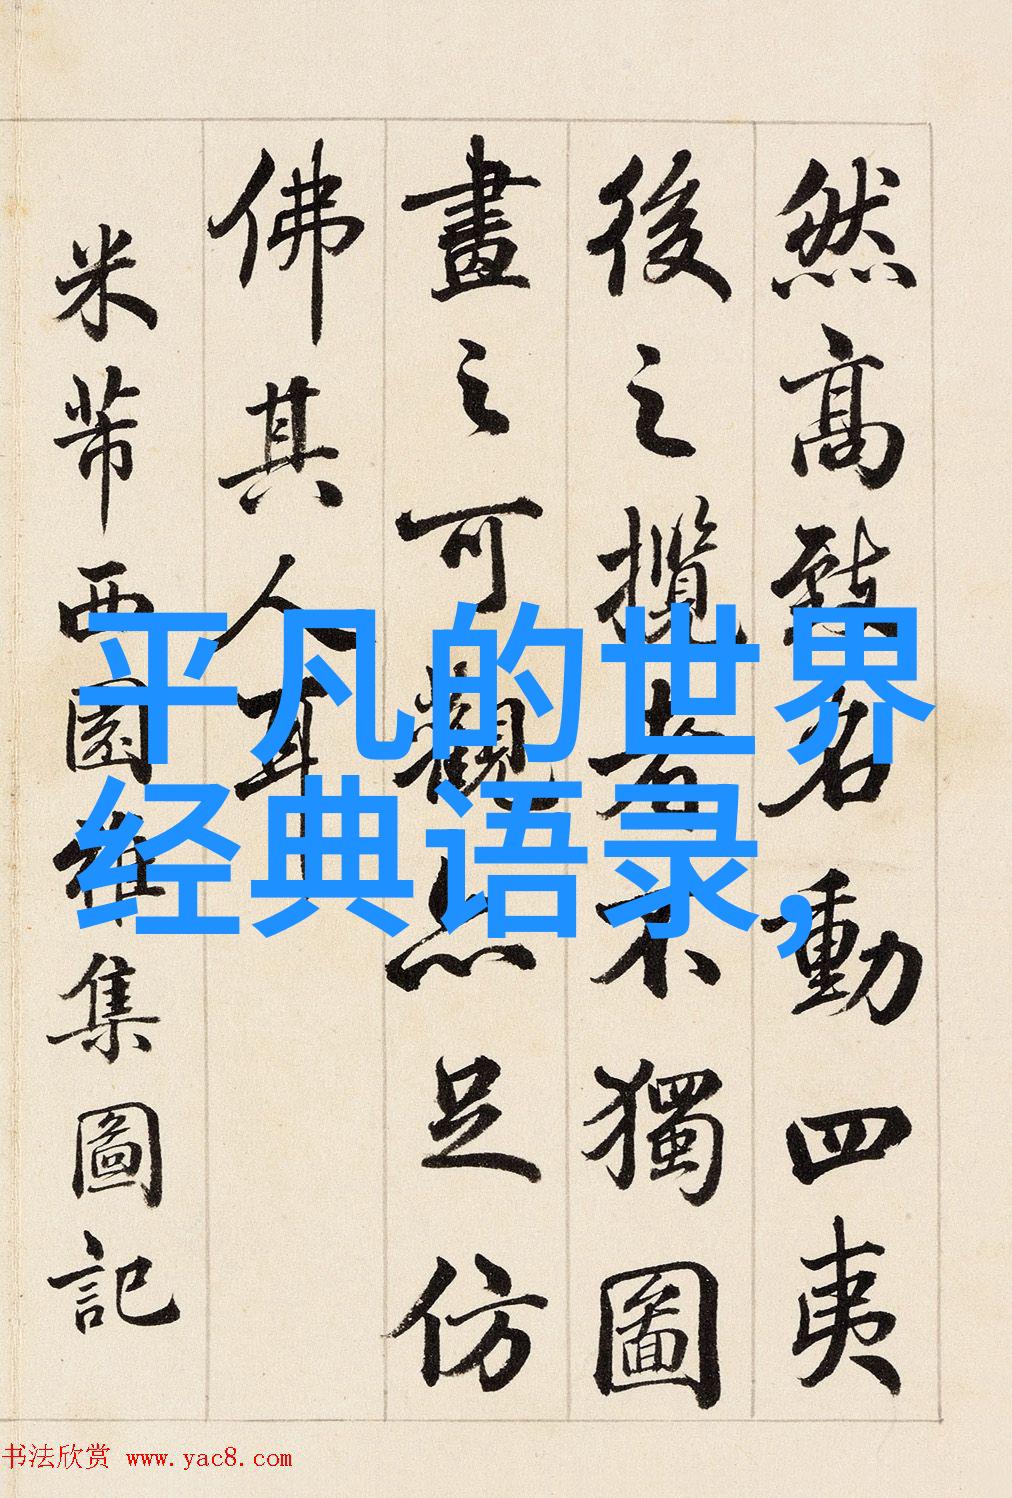 然高致名動四夷
後之攬者不獨圖
畫之可觀亦足仿
佛其人耳
米芾西園雅集圖記
平凡的世界
经典语录,
书法欣赏 www.yac8.com